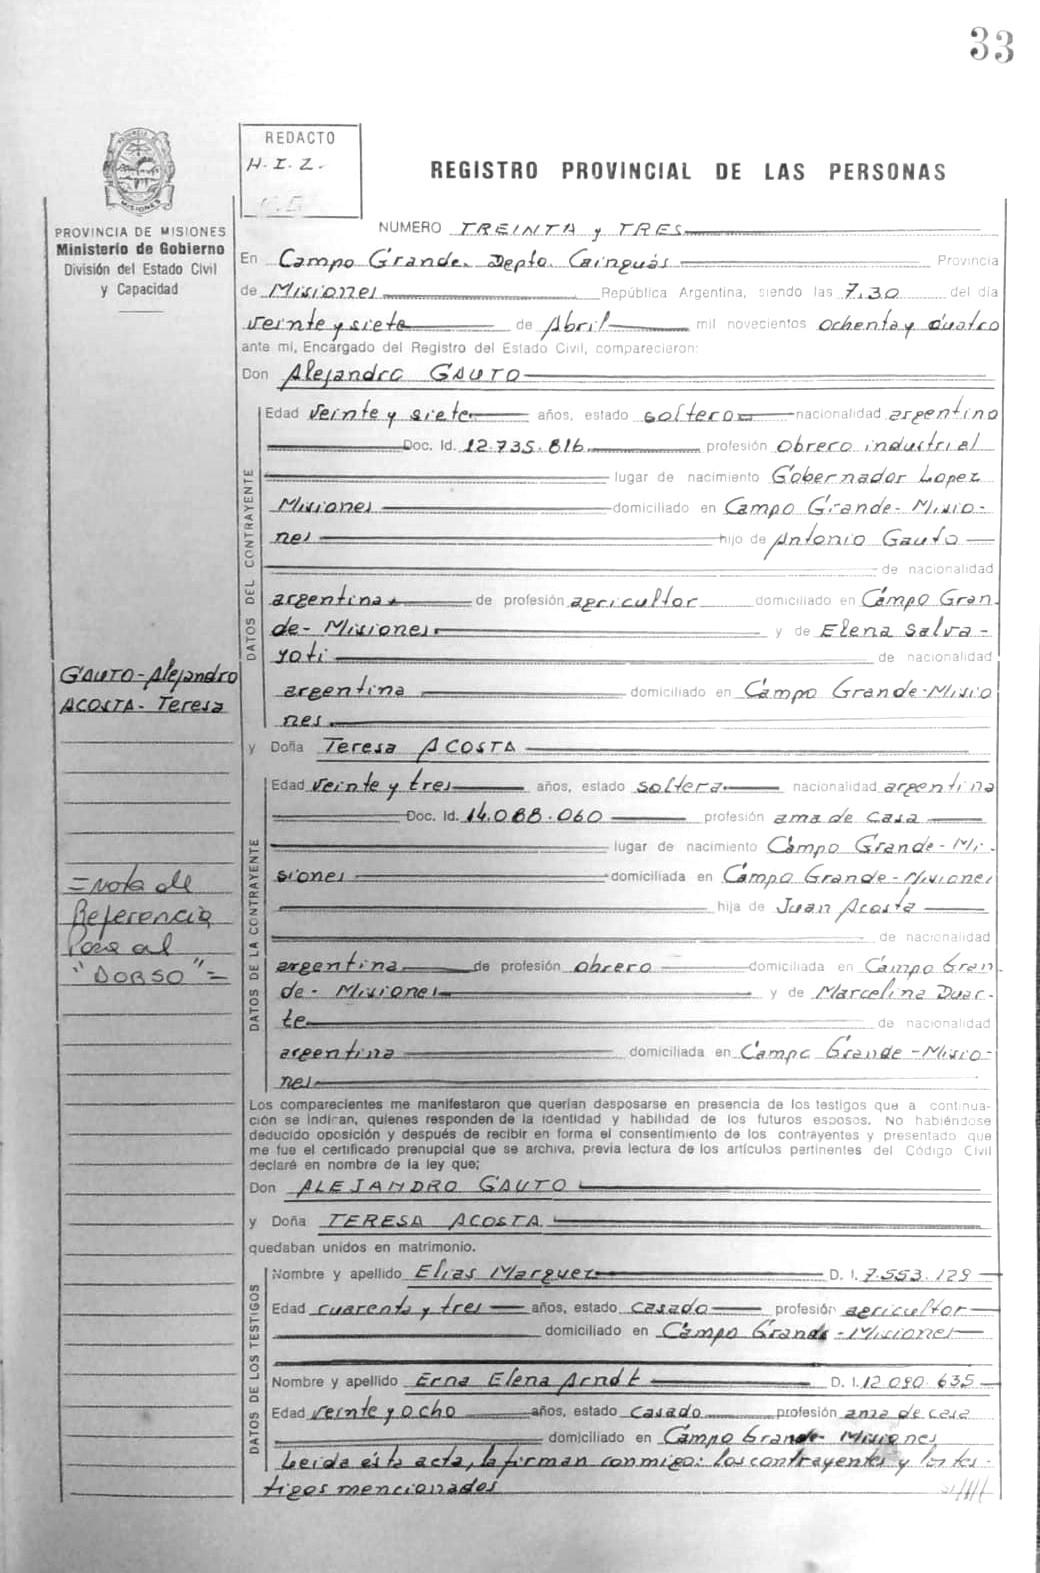 33
REDACTO
H. I. Z.
REGISTRO PROVINCIAL DE LAS PERSONAS
PROVINCIA DE MISIONES
Ministerio de Gobierno
División del Estado Civil
y Capacidad
NUMERO TREINTA y TRES
En Campo Grande. Depto. Cainguás Provincia
de Misiones República Argentina, siendo las 7,30 del día
veinte y siete de Abril mil novecientos ochenta y cuatro
ante mí, Encargado del Registro del Estado Civil, comparecieron:
Don Alejandro GAUTO
DATOS DEL CONTRAYENTE
Edad veinte y siete años, estado soltero nacionalidad argentino
Doc. Id. 12.735.816 profesión obrero industrial
lugar de nacimiento Gobernador Lopez
Misiones domiciliado en Campo Grande- Misio-
nes hijo de Antonio Gauto
de nacionalidad
argentina de profesión agricultor domiciliado en Campo Gran
de- Misiones y de Elena Salva-
de nacionalidad
argentina domiciliado en Campo Grande-Misio
nes
GAUTO-Alejandro
ACOSTA- Teresa
y Doña Teresa ACOSTA
DATOS DE LA CONTRAYENTE
Edad veinte y tres años, estado soltera nacionalidad argentina
Doc. Id. 14.088.060 profesión ama de casa
lugar de nacimiento Campo Grande- Mi-
siones domiciliada en Campo Grande-Misiones
hija de Juan Acosta
de nacionalidad
argentina de profesión obrero domiciliada en Campo Gran
de- Misiones y de Marcelina Duar-
te de nacionalidad
argentina domiciliada en Campo Grande-Misio-
nes
=Nota de
Referencia
Pasa al
"DORSO"=
Los comparecientes me manifestaron que querían desposarse en presencia de los testigos que a continua-
ción se indican, quienes responden de la identidad y habilidad de los futuros esposos. No habiéndose
deducido oposición y después de recibir en forma el consentimiento de los contrayentes y presentado que
me fue el certificado prenupcial que se archiva, previa lectura de los artículos pertinentes del Código Civil
declaré en nombre de la ley que;
Don ALEJANDRO GAUTO
y Doña TERESA ACOSTA
quedaban unidos en matrimonio.
DATOS DE LOS TESTIGOS
Nombre y apellido Elias Marquez D. I. 7.553.129
Edad cuarenta y tres años, estado casado profesión agricultor
domiciliado en Campo Grande-Misiones
Nombre y apellido Erna Elena Arndt D. I. 12.090.635
Edad veinte y ocho años, estado casado profesión ama de casa
domiciliado en Campo Grande- Misiones
Leida ésta acta, la firman conmigo: los contrayentes y los tes-
tigos mencionados